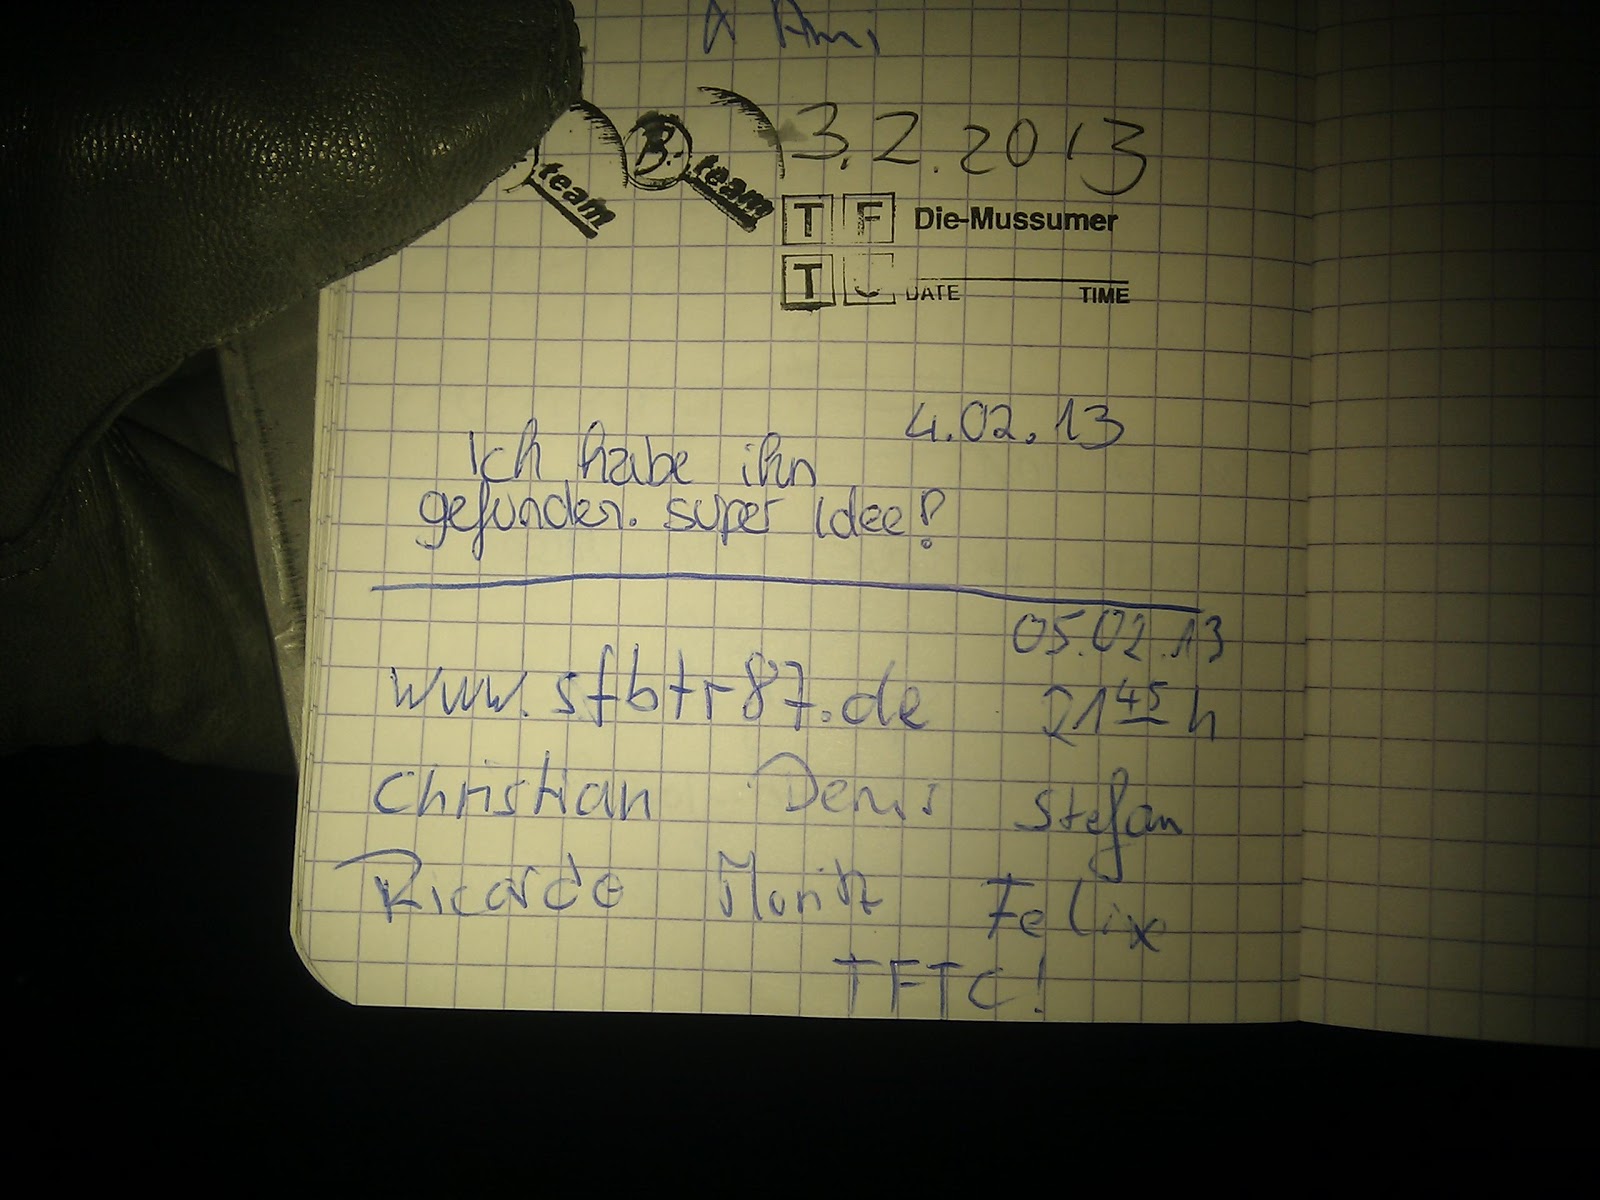 team B. team 3.2.2013
T F Die-Mussumer
T DATE TIME
4.02.13
Ich habe ihn
gefunden. super Idee!
05.02.13
www.sfbtr87.de 21 45 h
Christian Denis Stefan
Ricardo Moritz Felix
TFTC!